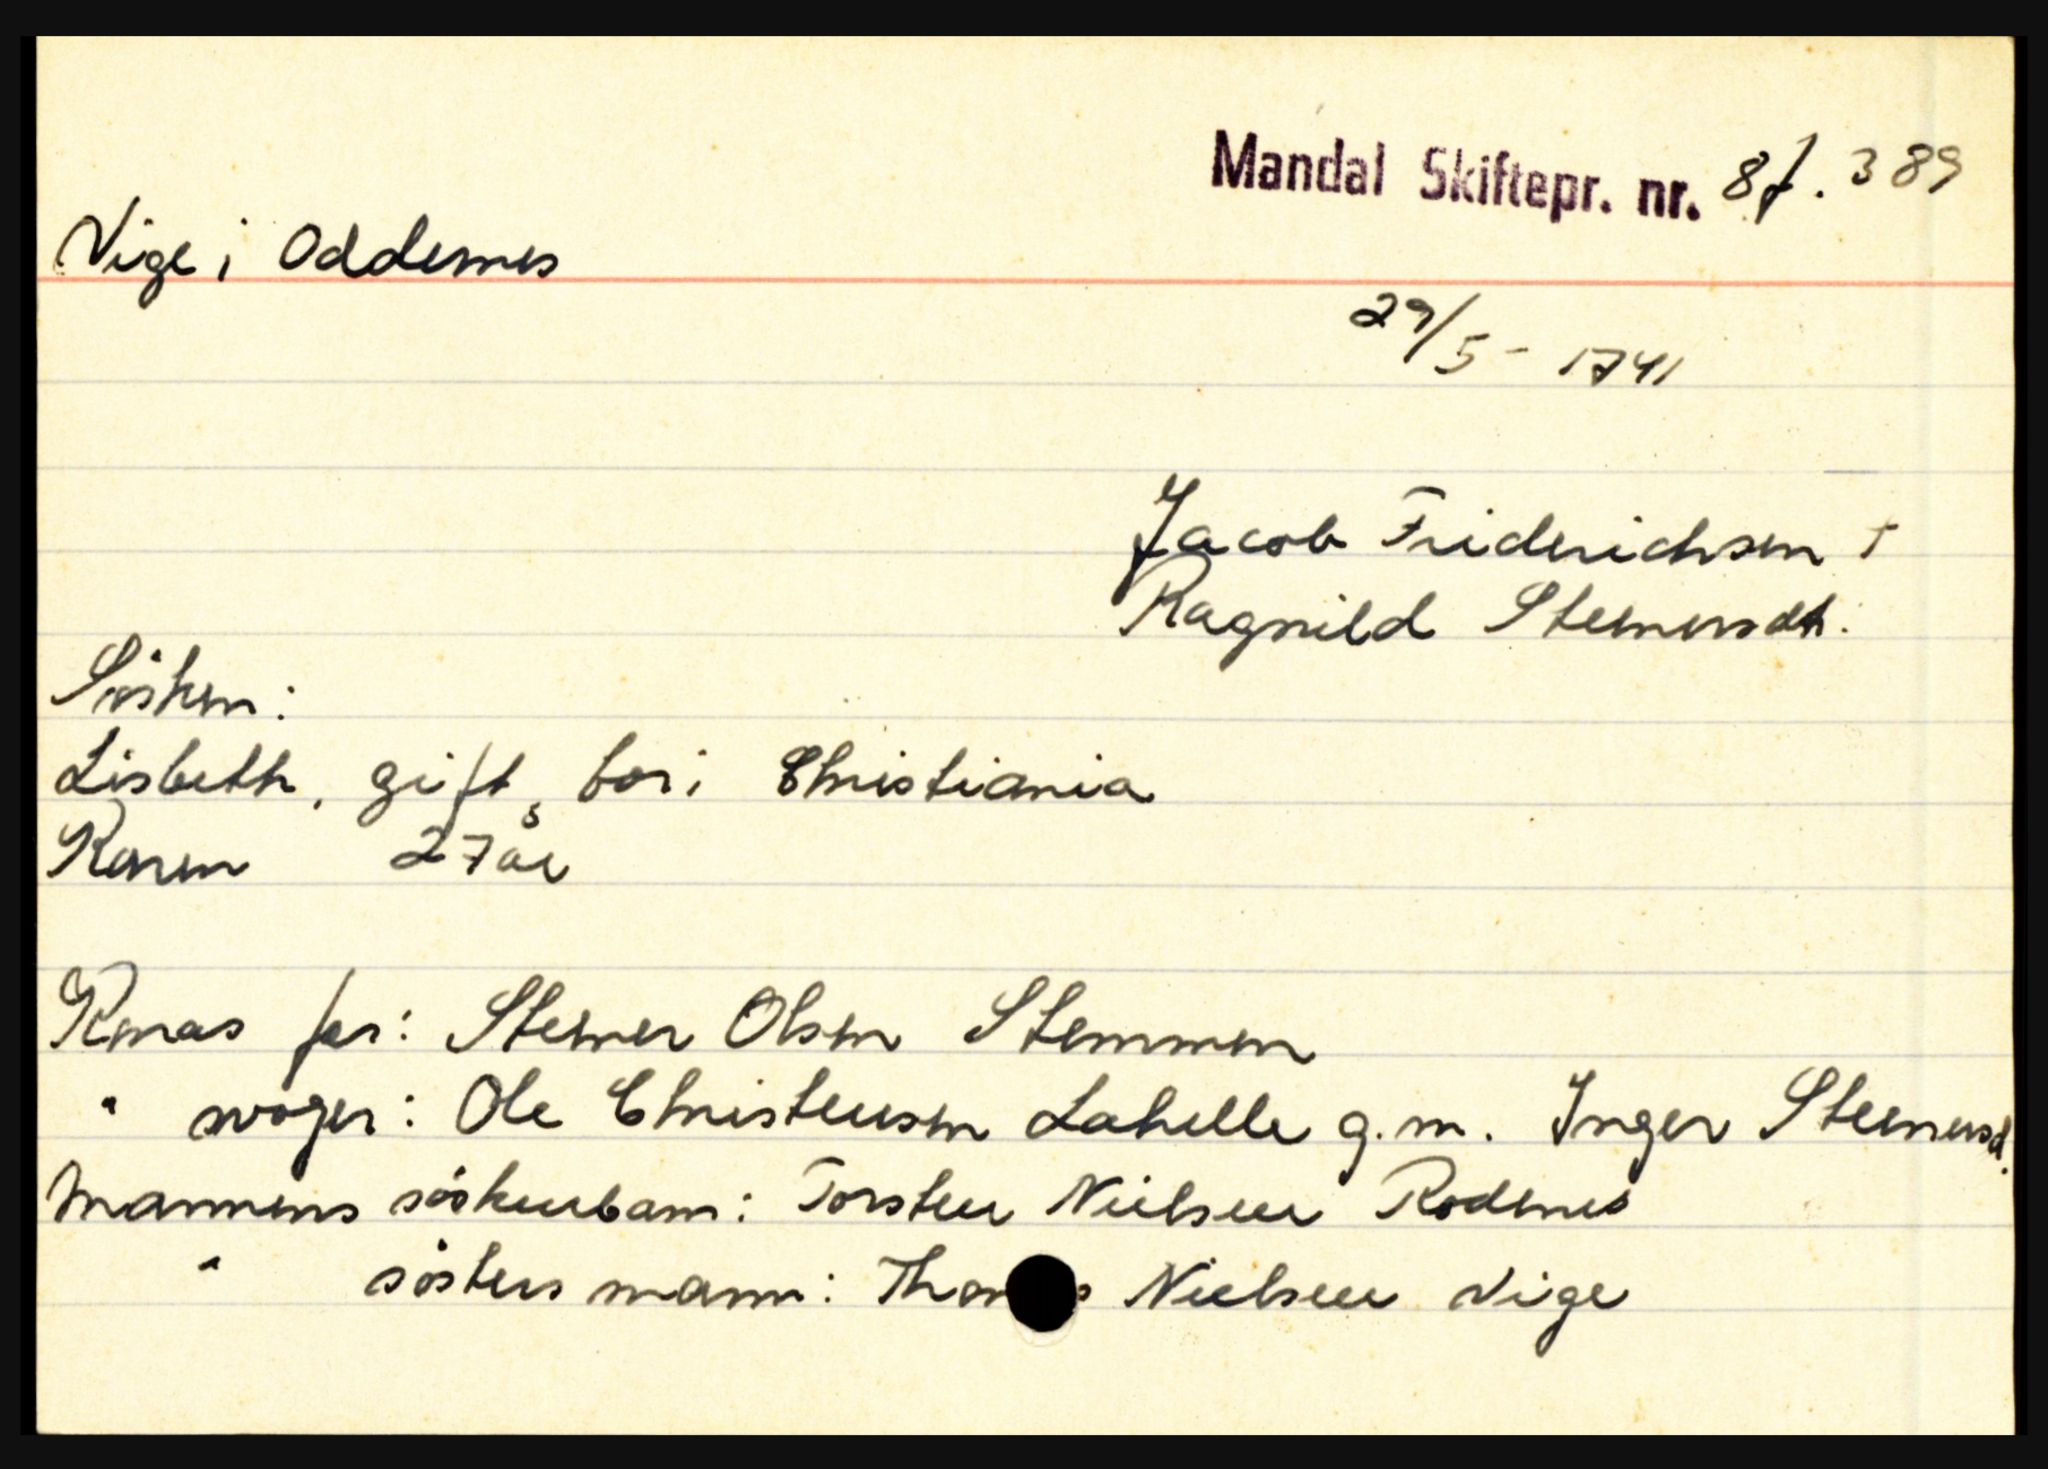 Mandal Skiftepr. nr. 8 f. 389
Vige i Oddernes
29/5 - 1741
Jacob Friderichsen †
Ragnild Stenersdt.
Søsken:
Lisbeth, gift, bor i Christiania
Karen 27 år
Konas far: Stener Olsen Stemmen
" svoger: Ole Christensen Lahelle g.m. Inger Stenersd.
Mannens søskenbarn: Torsten Nielsen Rodenes
" søsters mann: Nielsen Vige